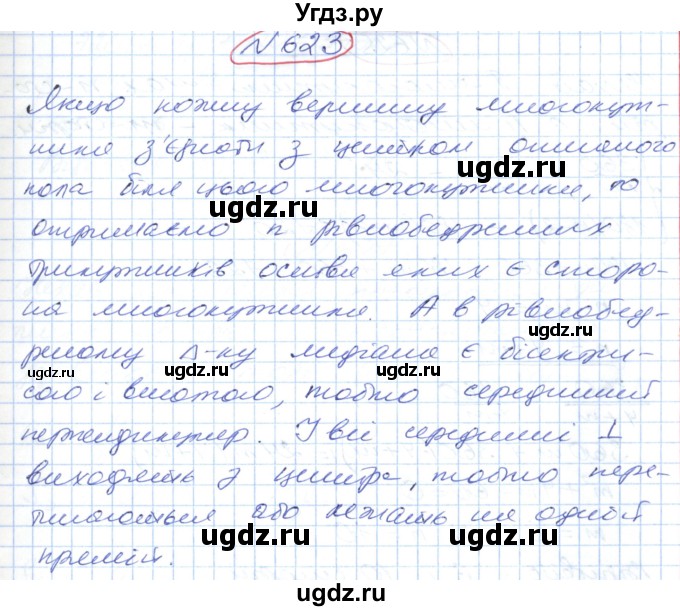 Угдз.ру
N 623
Якщо кожну вершину многокут-
ника з'єднати з центром описаного
кола біля цього многокутника, то
отримаємо n рівнобедрених
трикутників основа яких є сторо-
на многокутника. А в рівнобед-
реному Δ-ку медіана є бісектри-
сою і висотою, тобто середнiй
перпендикуляр. І всі середині ⊥
виходять з центра, тобто пере-
тинаються або лежать на одній
прямій.
ugdz.ru
ugdz.ru
ugdz.ru
ugdz.ru
ugdz.ru
ugdz.ru
ugdz.ru
ugdz.ru
ugdz.ru
ugdz.ru
ugdz.ru
ugdz.ru
ugdz.ru